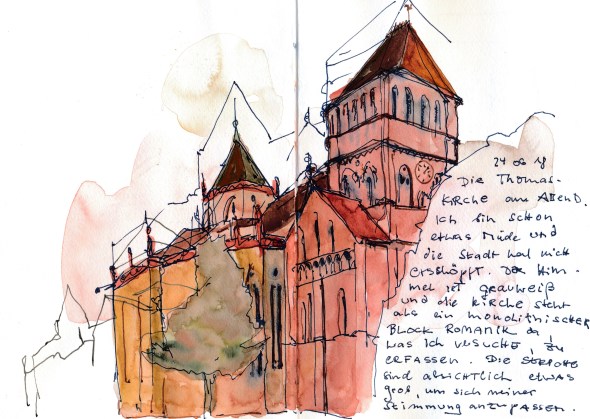 24 08 18
Die Thomas-
kirche am Abend.
Ich bin schon
etwas müde und
die Stadt hat mich
erschöpft. Der Him-
mel ist grauweiß
und die Kirche steht
als ein monolithischer
BLOCK ROMANIK da
was ich versuche, zu
ERFASSEN. Die
sind absichtlich etwas
groß, um sich meiner
Stimmung anzupassen.